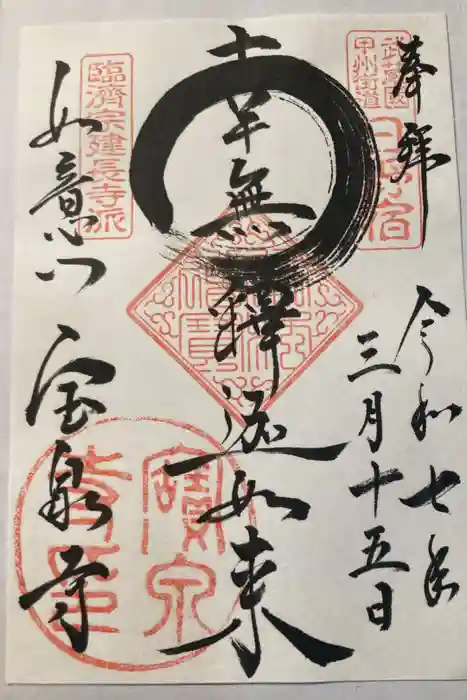 奉拝
武蔵國
甲州街道
日野宿
令和七年
三月十五日
南無釋迦如来
臨濟宗建長寺派
如意山
宝泉寺
寶泉
寺印